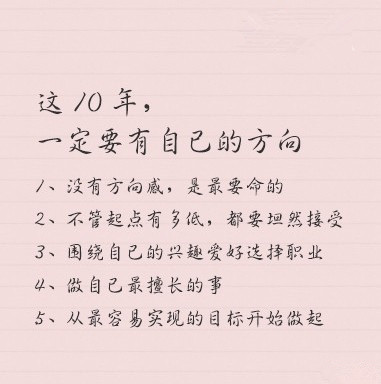 这10年，
一定要有自己的方向
1、没有方向感，是最要命的
2、不管起点有多低，都要坦然接受
3、围绕自己的兴趣爱好选择职业
4、做自己最擅长的事
5、从最容易实现的目标开始做起